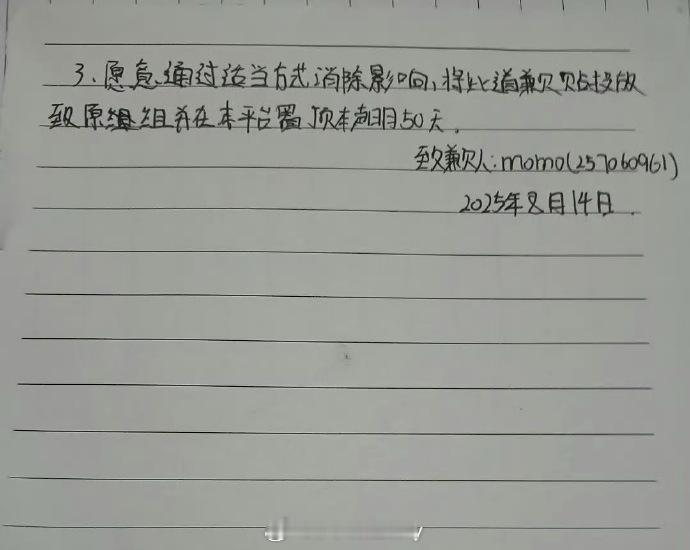 3、愿意通过适当方式消除影响，将此道歉贴投放
致原组组并在本平台置顶本声明50天.
致歉人：momo(257060961)
2025年8月14日.